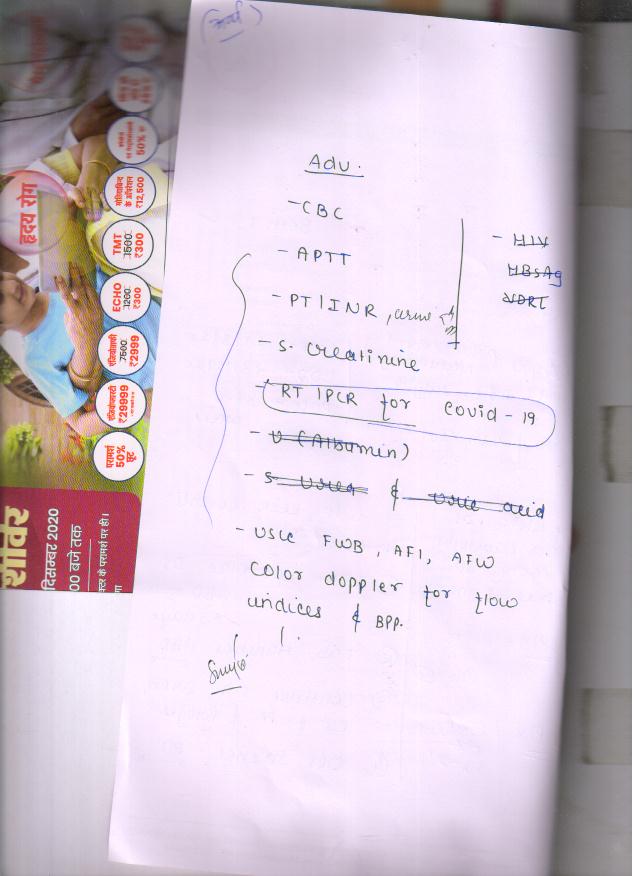 Adv.
- CBC
- APTT
- PT|INR,
- S. Creatinine
- RT |PCR for Covid-19
- U (Albumin)
- S. Urea & Uric acid
- USG FWB, AFI, AFW
Color doppler for flow
indices & BPP.
- HIV
HBsAg
VDRL
हृदय रोग
₹12,500
TMT
1500
₹300
ECHO
1200
₹300
7500
₹2999
₹29999
परामर्श
50%
छूट
50%
दिसम्बर 2020
00 बजे तक
क्टर के परामर्श पर ही।